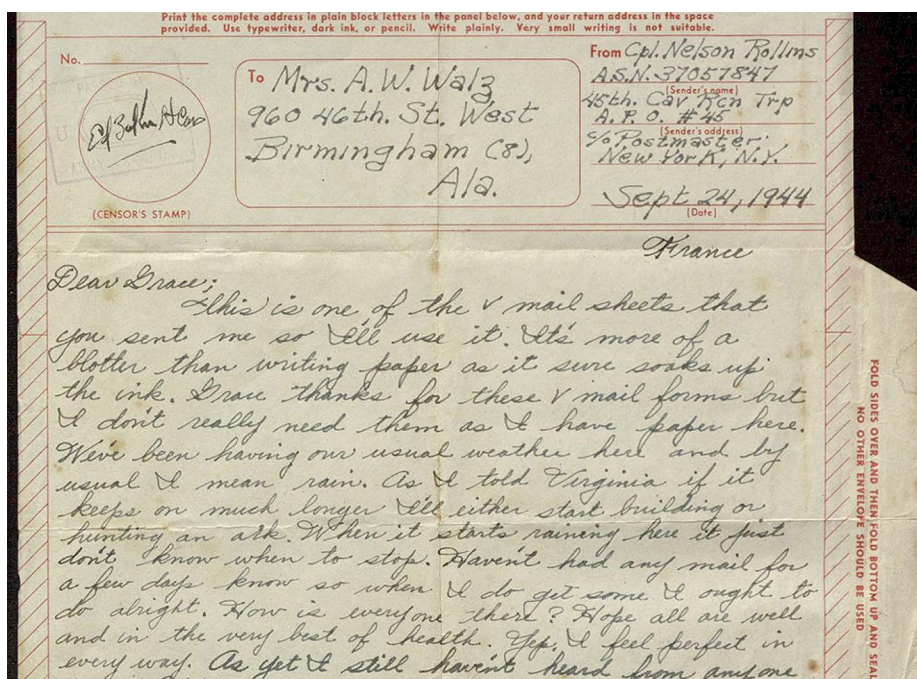 Print the complete address in plain block letters in the panel below, and your return address in the space
provided. Use typewriter, dark ink, or pencil. Write plainly. Very small writing is not suitable.
No.
(CENSOR'S STAMP)
To Mrs. A. W. Walz
960 46th. St. West
Birmingham (8),
Ala.
From Cpl. Nelson Rollins
A.S.N. 37057847
(Sender's name)
45th. Cav Rcn Trp
A. P. O. # 45
(Sender's address)
c/o Postmaster.
New York, N.Y.
Sept 24, 1944
(Date)
France
Dear Grace;
This is one of the V mail sheets that
you sent me so I'll use it. It's more of a
blotter than writing paper as it sure soaks up
the ink. Grace thanks for these V mail forms but
I don't really need them as I have paper here.
We've been having our usual weather here and by
usual I mean rain. As I told Virginia if it
keeps on much longer I'll either start building or
hunting an ark. When it starts raining here it just
don't know when to stop. Haven't had any mail for
a few days know so when I do get some I ought to
do alright. How is everyone there? Hope all are well
and in the very best of health. Yep. I feel perfect in
every way. As yet I still haven't heard from anyone
FOLD SIDES OVER AND THEN FOLD BOTTOM UP AND SEAL
NO OTHER ENVELOPE SHOULD BE USED